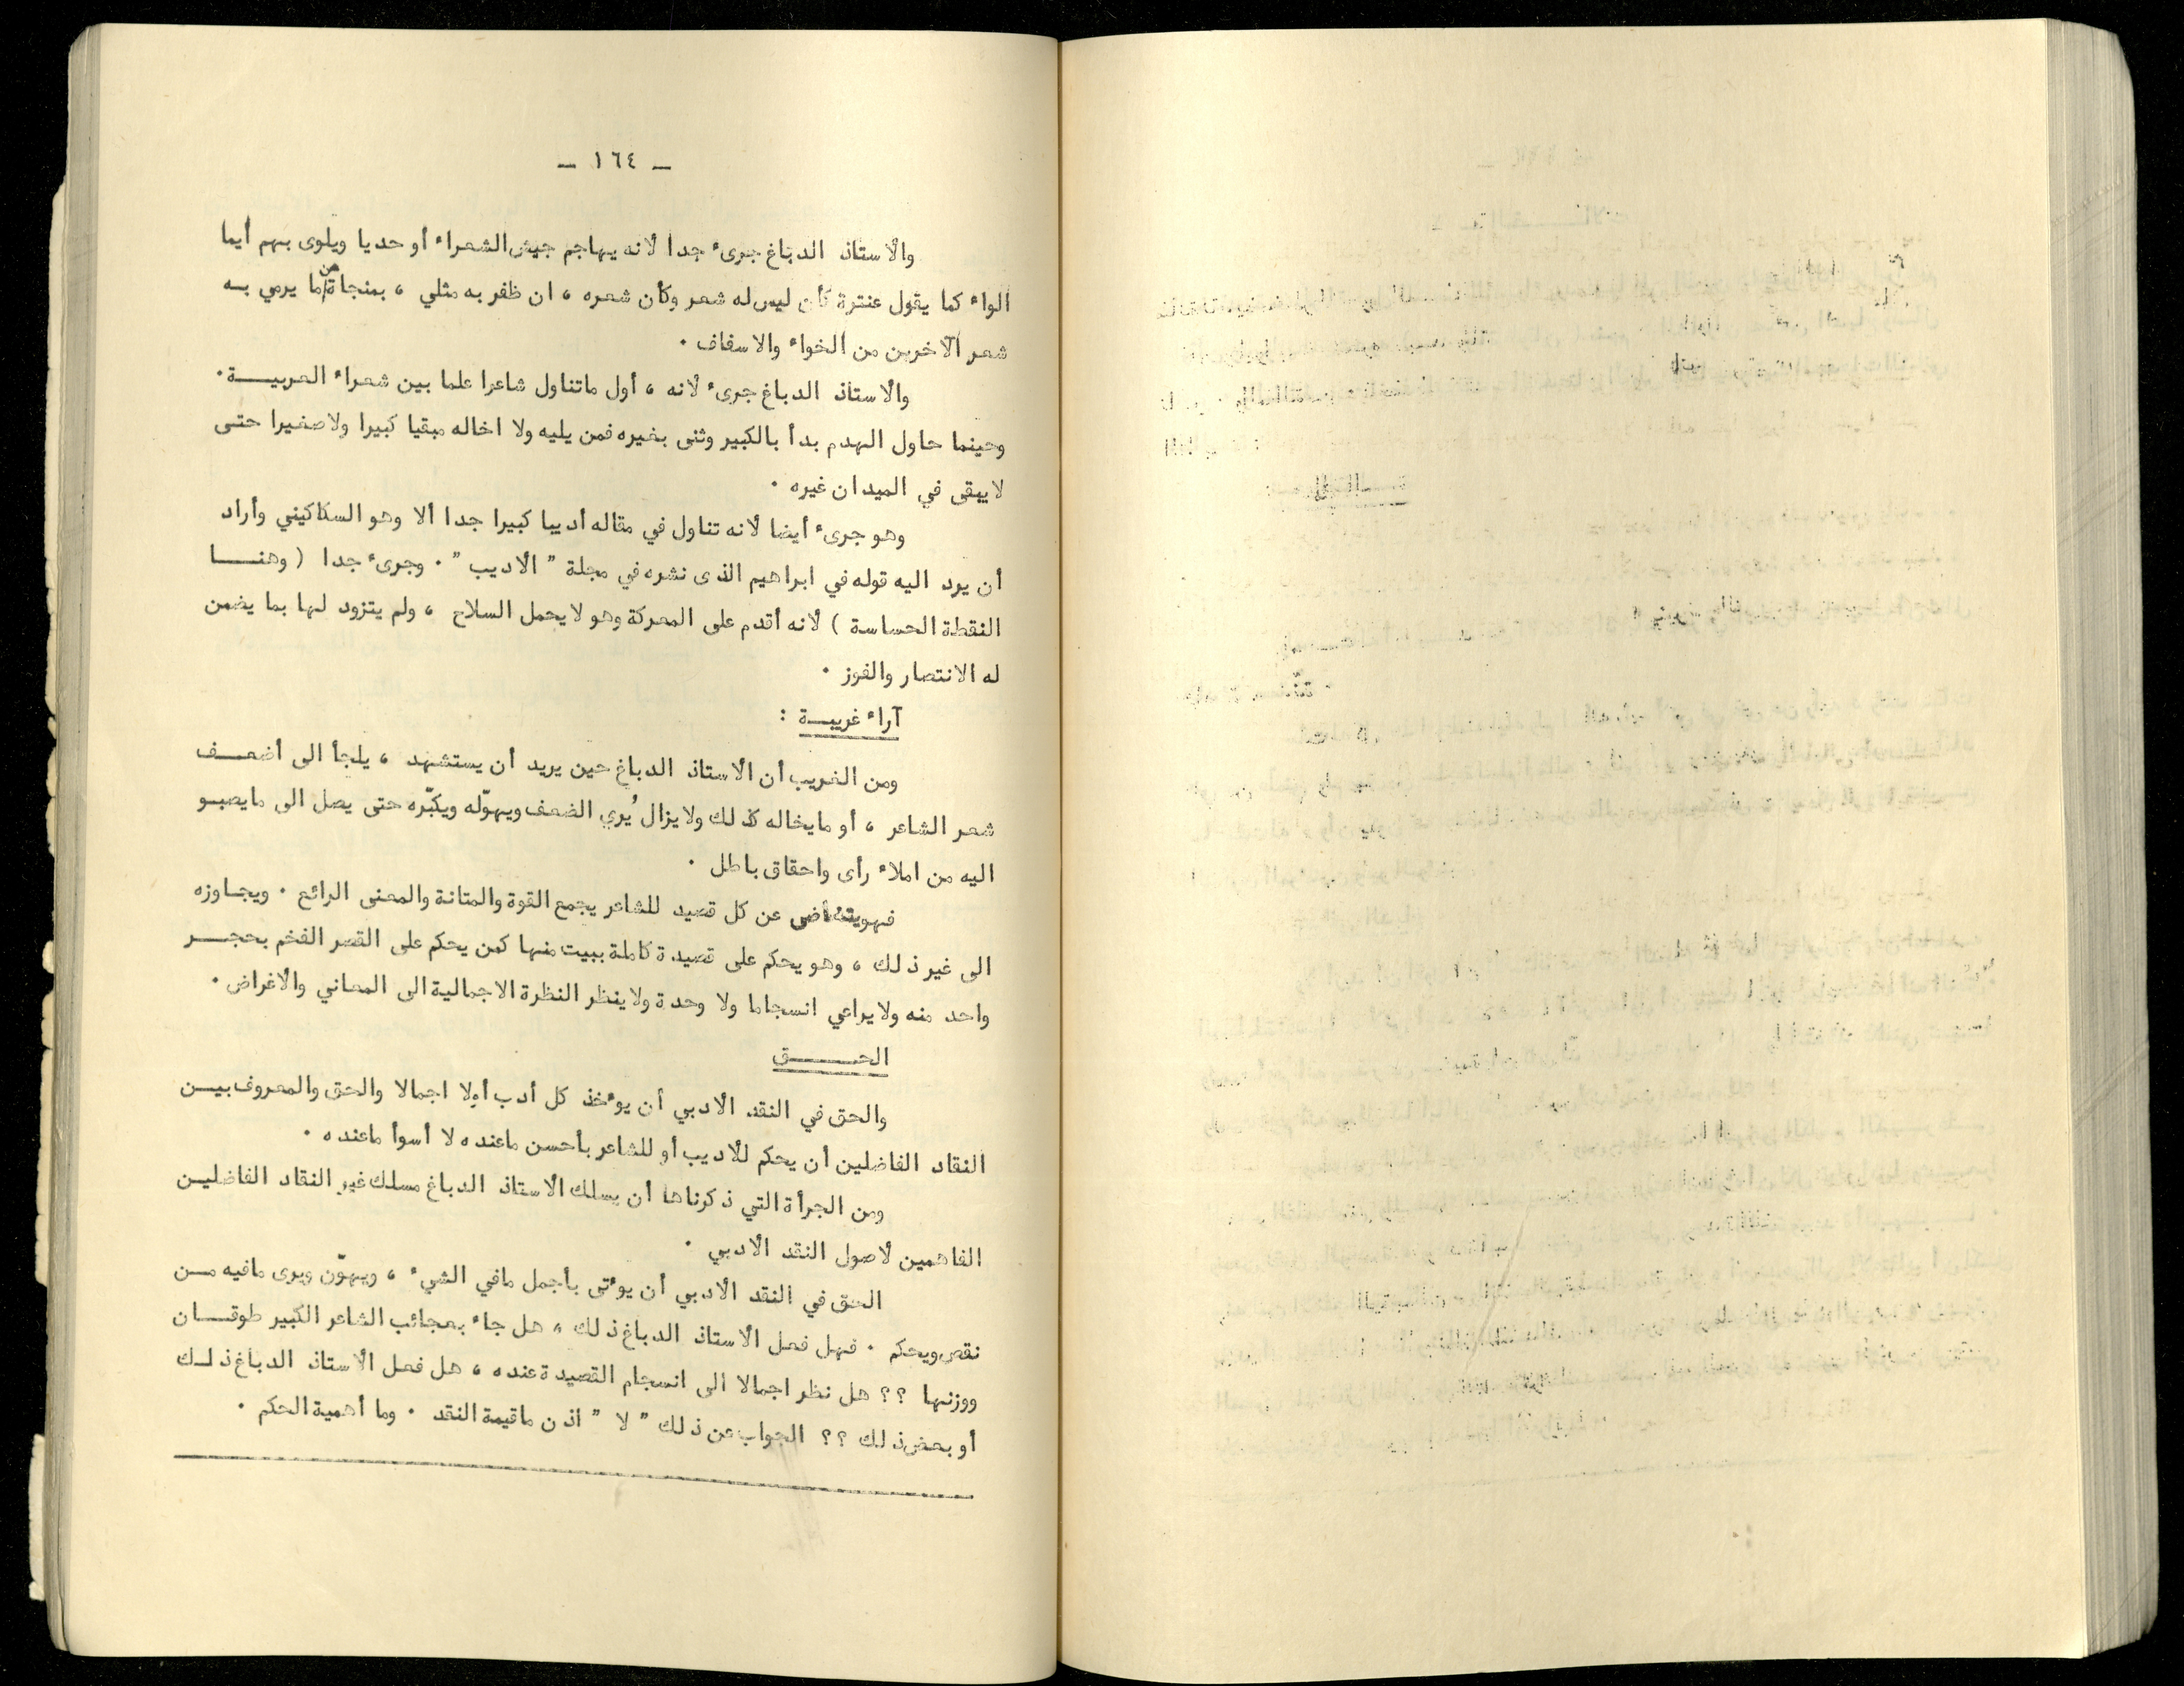 — ١٦٤ —
والأستاذ الدباغ جرىء جدا لانه يهاجم جيش الشعراء أو حديا ويلوى بهم أيما
الواء كما يقول عنترة كأن ليس له شعر وكأن شعره ، ان ظفر به مثلي ، بمنجاة من ما يرمي به
شعر الآخرين من الخواء والاسفاف .
والأستاذ الدباغ جرىء لانه ، أول ماتناول شاعرا علما بين شعراء العربيـــة .
وحينما حاول الهدم بدأ بالكبير وثنى بغيره فمن يليه ولا اخاله مبقيا كبيرا ولاصغيرا حتى
لايبقى في الميدان غيره .
وهو جرىء أيضا لأنه تناول في مقاله أديبا كبيرا جدا ألا وهو السكاكيني وأراد
أن يرد اليه قوله في ابراهيم الذى نشره في مجلة " الأديب " . وجرىء جدا ( وهنـــا
النقطة الحساسة ) لأنه أقدم على المعركة وهو لايحمل السلاح ، ولم يتزود لها بما يضمن
له الانتصار والفوز .
آراء غريبـــة :
ومن الغريب أن الأستاذ الدباغ حين يريد أن يستشهد ، يلجأ الى أضعـــف
شعر الشاعر ، أو مايخاله كذلك ولايزال يُري الضعف ويهوّله ويكبّره حتى يصل الى مايصبـو
اليه من املاء رأى واحقاق باطل .
فهو يتغاضى عن كل قصيد للشاعر يجمع القوة والمتانة والمعنى الرائع . ويجـاوزه
الى غير ذلك ، وهو يحكم على قصيدة كاملة ببيت منها كمن يحكم على القصر الفخم بحجـــر
واحد منه ولايراعي انسجاما ولا وحدة ولاينظر النظرة الاجمالية الى المعاني والأغراض .
الحـــــق
والحق في النقد الأدبي أن يؤخذ كل أدب أولا اجمالا والحق والمعروف بيـــن
النقاد الفاضلين أن يحكم للأديب أو للشاعر بأحسن ماعنده لا أسوأ ماعنده .
ومن الجرأة التي ذكرناها أن يسلك الأستاذ الدباغ مسلك غير النقاد الفاضليـن
الفاهمين لأصول النقد الأدبي .
الحق في النقد الأدبي أن يؤتى بأجمل مافي الشيء ، ويهوّن ويرى مافيه مـــن
نقص ويحكم . فهل فعل الأستاذ الدباغ ذلك ، هل جاء بعجائب الشاعر الكبير طوقـــان
ووزنها ؟؟ هل نظر اجمالا الى انسجام القصيدة عنده ، هل فعل الأستاذ الدباغ ذلـك
أو بعض ذلك ؟؟ الجواب عن ذلك " لا " اذن ماقيمة النقد . وما أهمية الحكم .